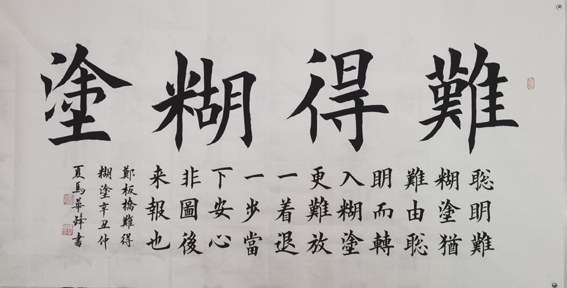 難得糊塗
聡明難
糊塗猶
難由聡
明而轉
入糊塗
更難放
一着退
一步當
下安心
非圖後
来報也
鄭板橋難得
糊塗辛丑仲
夏馬華書